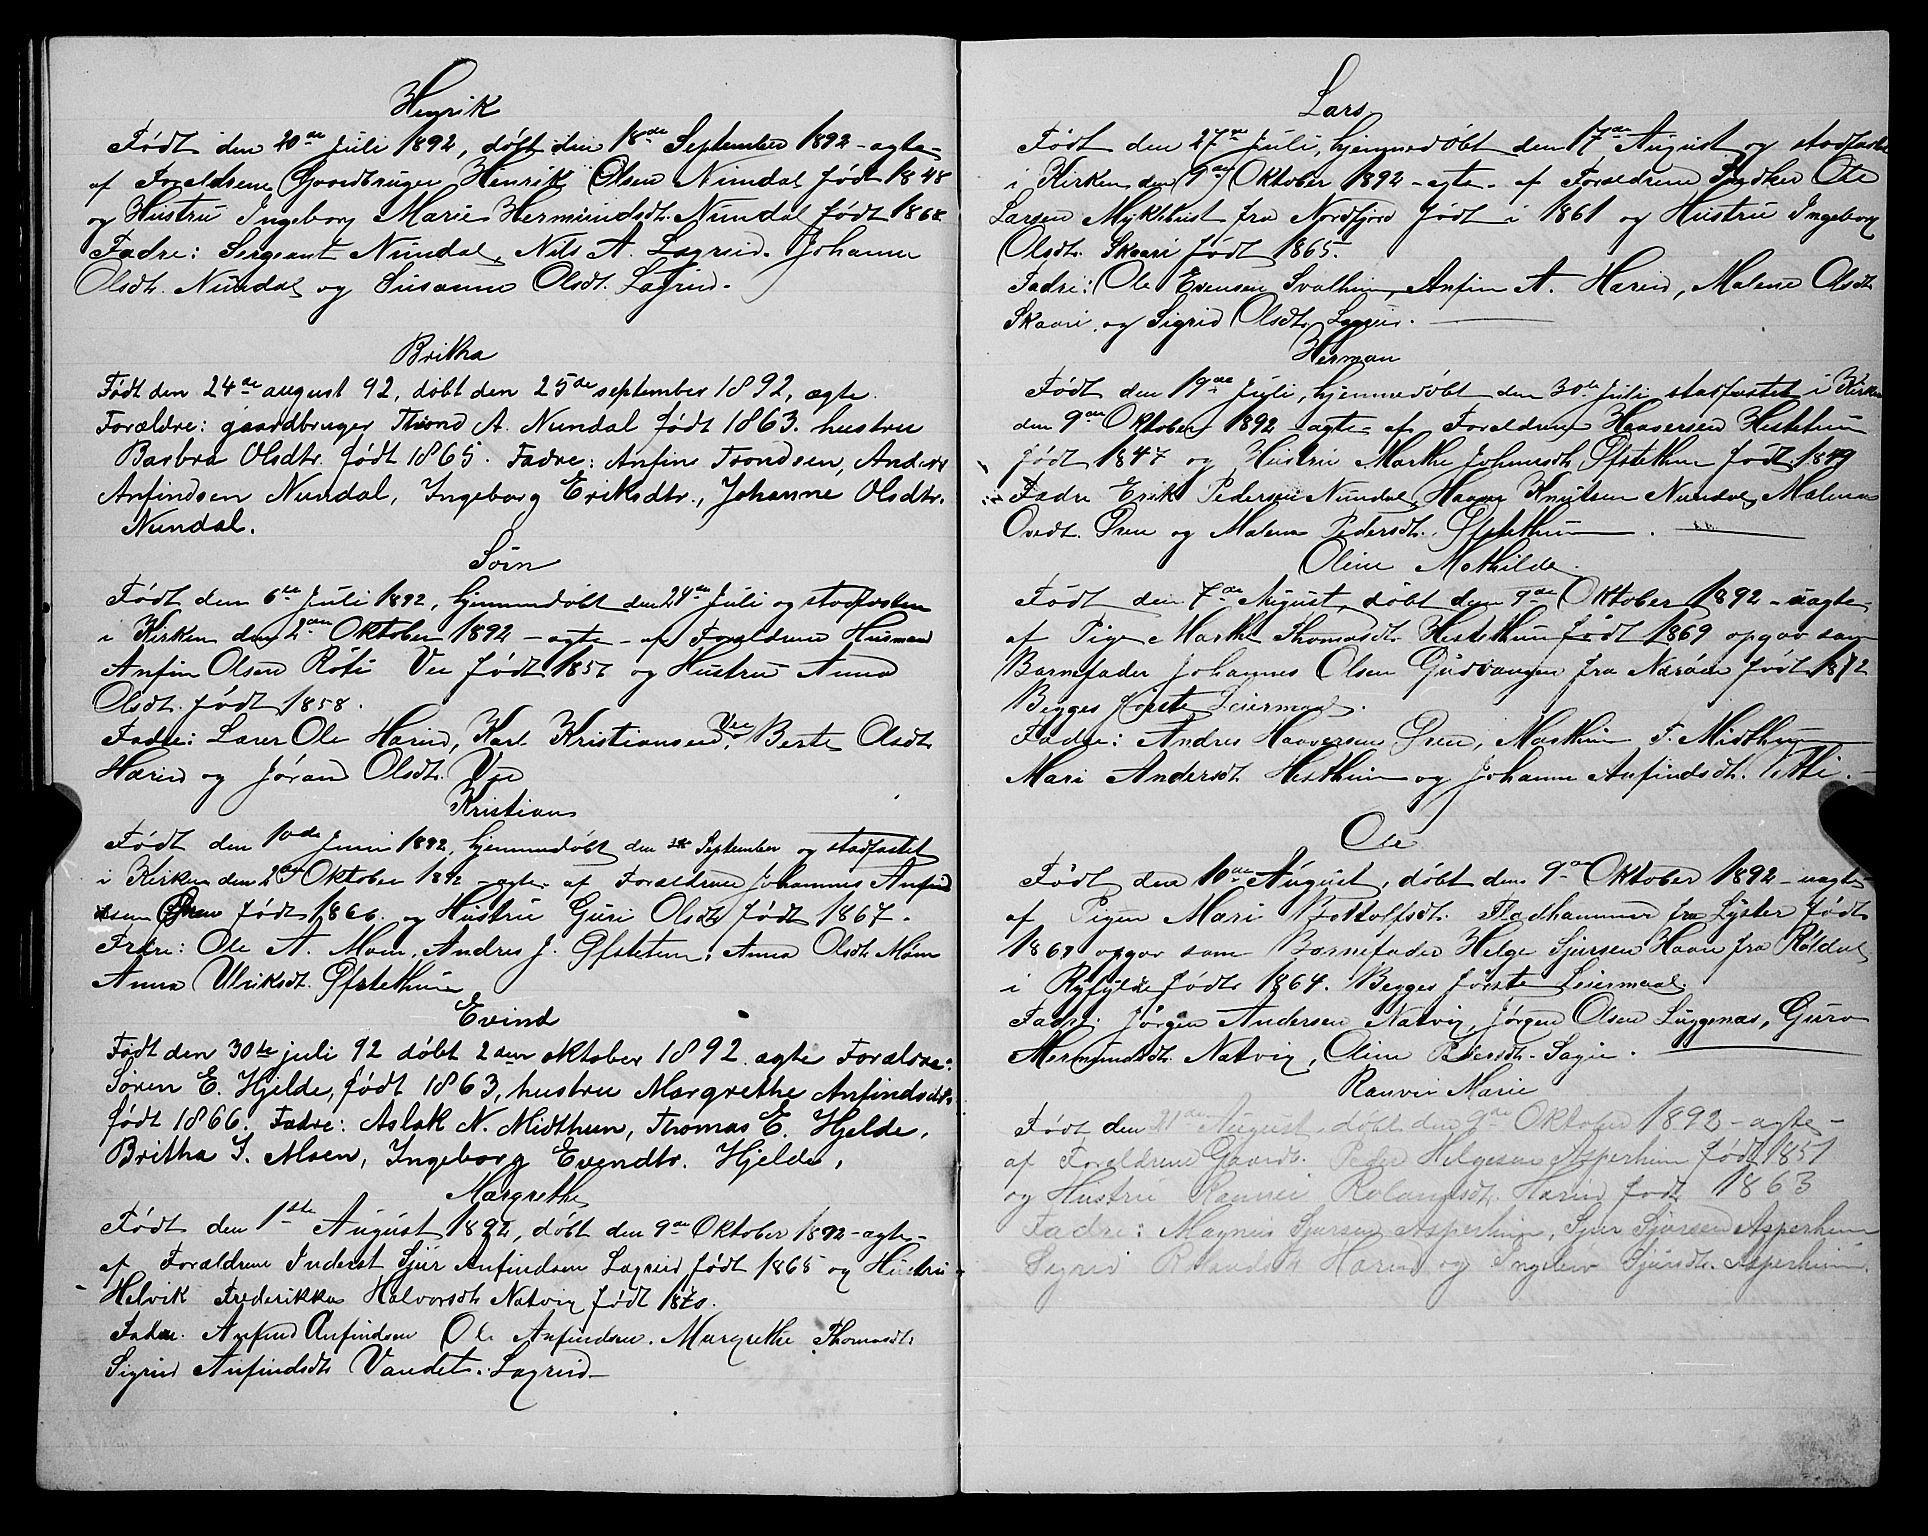 Henrik
Født den 20de Juli 1892, døbt den 18de September 1892 - ægte -
af Foreldrene Gaardbruger Henrik Olsen Nundal født 1848
og Hustru Ingeborg Marie Hermundsdt. Nundal født 1868.
Fadre: Sergeant Nundal, Nils A. Lægreid. Johanne
Olsdt. Nundal og Susanne Olsdt. Lægreid.
Britha
Født den 24de august 92, døbt den 25de september 1892, ægte.
Forældre: gaardbruger Thrond A. Nundal født 1863. hustru
Barbra Olsdtr. født 1865. Fadre: Anfinn Trondsen, Anders
Anfindsen Nundal, Ingeborg Eriksdtr., Johanne Olsdtr.
Nundal.
Søren
Født den 6te Juli 1892, hjemmedøbt den 24de Juli og stadfæsten
i Kirken den 2den Oktober 1892 - ægte - af Foreldrene Husmand
Anfin Olsen Røti Vee født 1857 og Hustru Anna
Olsdt. født 1858.
Fadre: Lærer Ole Hæreid, Karl Kristiansen Vee, Berte Olsdt.
Hæreid og Jørand Olsdt. Vee
Kristian
Født den 10de Juni 1892, hjemmedøbt den September og stadfæstet
i Kirken den 2den Oktober 1892 - ægte - af Foreldrene Johannes Anfind
sen Øren født 1866. og Hustru Guri Olsdt. født 1867.
Fadre: Ole A. Moen, Andres J. Øfstetun, Anna Olsdt. Moen
Anna Ulriksdt. Øfstethun
Evind
Født den 30te juli 92 døbt 2den oktober 1892. ægte Forældre:
Søren E. Hjelde, født 1863, hustru Margrethe Anfindsdtr.
født 1866. Fadre: Aslak N. Midthun, Thomas E. Hjelde,
Britha I. Moen, Ingeborg Evendtr. Hjelde,
Margrethe
Født den 1ste August 1892, døbt den 9de Oktober 1892 - ægte -
af Forældrene Inderst Sjur Anfindsen Lægreid født 1865 og Hustru
Helvik Frederikke Halvorsdt. Natvig født 1870.
Fadre. Anfind Anfindsen Ole Anfindsen. Margrethe Thomasdt.
Sigrid Anfindsdt. Vandet. Lægreid
Lars
Født den 27de Juli, hjemmedøbt den 17de August og stadfæstet
i Kirken den 9de Oktober 1892 - ægte - af Foreldrene Ole
Larsen Myklebust fra Nordfjord født i 1861 og Hustru Ingeborg
Olsdt. Skaari født 1865.
Fadre: Ole Evensen Svalheim, Anfin A. Hæreid, Malene Olsdt.
Skaari, og Sigrid Olsdt. Lægreid.
Herman
Født den 19de Juli, hjemmedøbt den 30te Juli stadfæstet i Kirken
den 9de Oktober 1892 - ægte - af Foreldrene Hestetun
født 1847 og Hustru Marthe Johansdt. Øfstethun født 1849
Fadre Erik Pedersen Nundal, Haavar Knutsen Nundal, Malene
Øren og Malene Pedersdt. Øfstethun.
Oline Mathilde
Født den 7de August, døbt den 9de Oktober 1892 - uægte -
af Pige Marthe Thomasdt. Hestethun født 1869 opgav som
Barnefader Johannes Olsen Gudvangen fra Nærøen født 1872
Begges første Leiermaal.
Fadre: Andres Haaversen Øren, Mathias T. Midthun
Mari Andersdt. Hesthun og Johanne Anfindsdt. Vetti.
Ole
Født den 10de August, døbt den 9de Oktober 1892 - uægte -
af Pigen Mari Bottolfsdt. Fladhammer fra Lyster født
1869 opgav som Barnefader Helge Sjursen Haare fra Røldal
i Ryfylde født 1864. Begges første Leiermaal.
Fadre. Jørgen Andersen Natvig, Jørgen Olsen Luggenæs, Guro
Hermundsdt. Natvig, Oline Pedersdt.
Ranvei Marie
Født den 21de August døbt den 9de Oktober 1892 - ægte -
af Foreldrene Gaardb. Peder Helgesen Asperheim født 1851
og Hustru Rannei Rolandsdt. Hæreid født 1863
Fadre: Magnus Sjursen Asperheim, Sjur Sjursen Asperheim
Sigrid Rolandsdt. Hæreid og Ingeleiv Sjursdt. Asperheim.